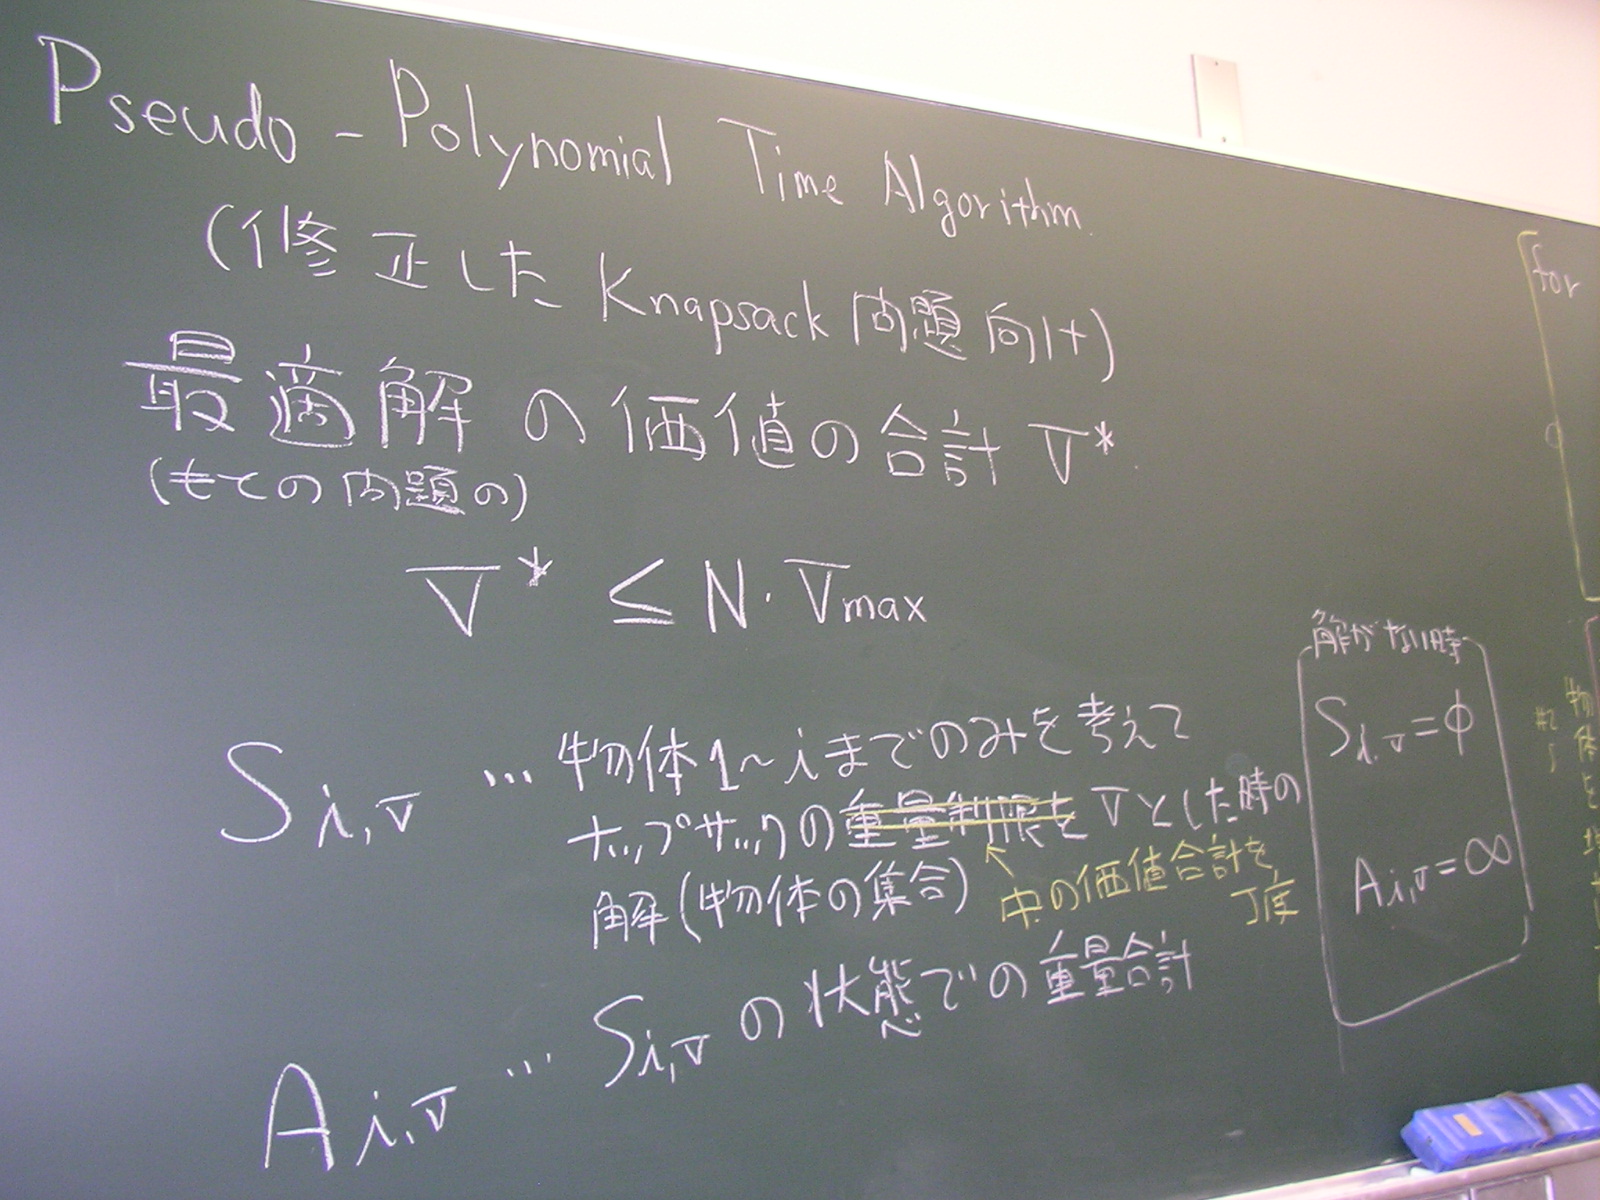 Pseudo-Polynomial Time Algorithm
(修正したKnapsack問題向け)
最適解の価値の合計 V*
(もとの問題の)
V* ≤ N・Vmax
Si,v … 物体1〜iまでのみを考えて
ナップサックの重量制限を Vとした時の
中の価値合計を
丁度
解(物体の集合)
Ai,v … Si,vの状態での重量合計
解がない時
Si,v=φ
Ai,v=∞
for
物体を